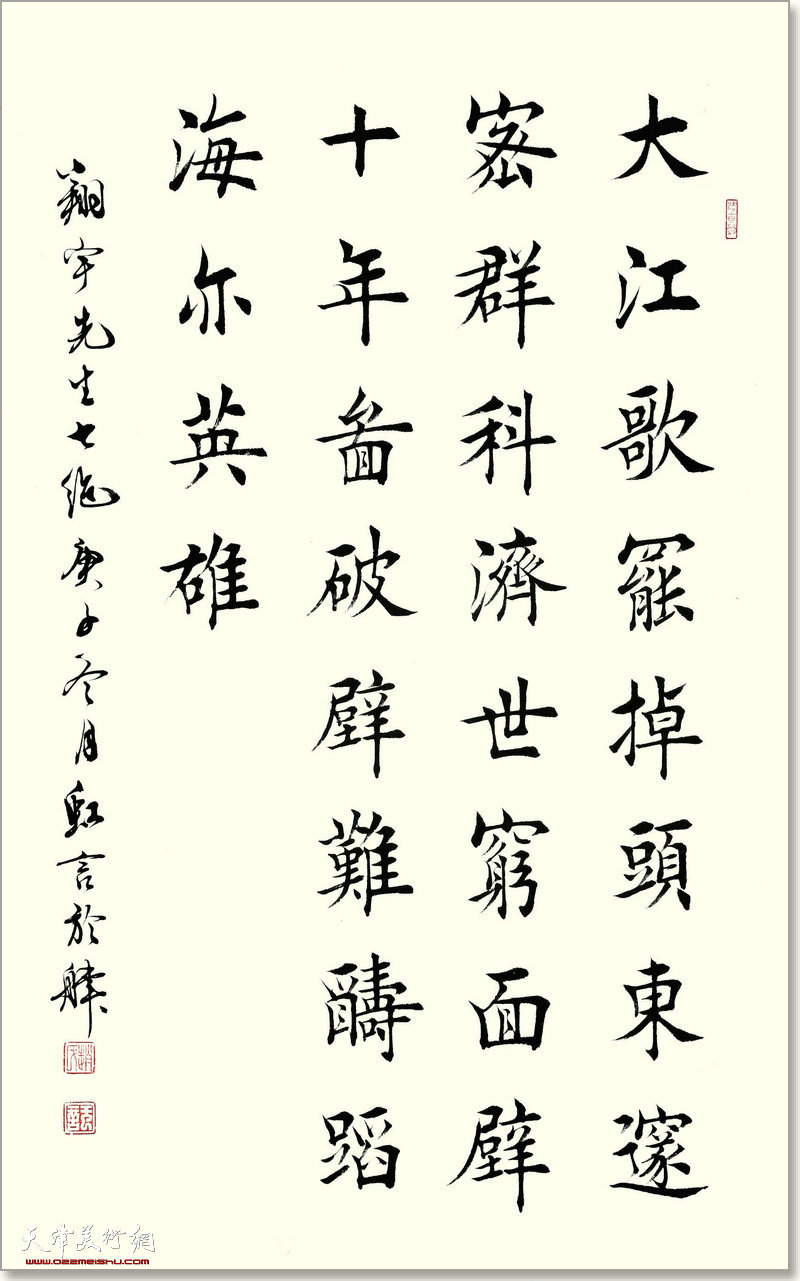 大江歌罷掉頭東邃
密群科濟世窮面壁
十年啚破壁難醻蹈
海亦英雄
翔宇先生七絕庚子冬月虹言於
天津美術網
www.022meishu.com